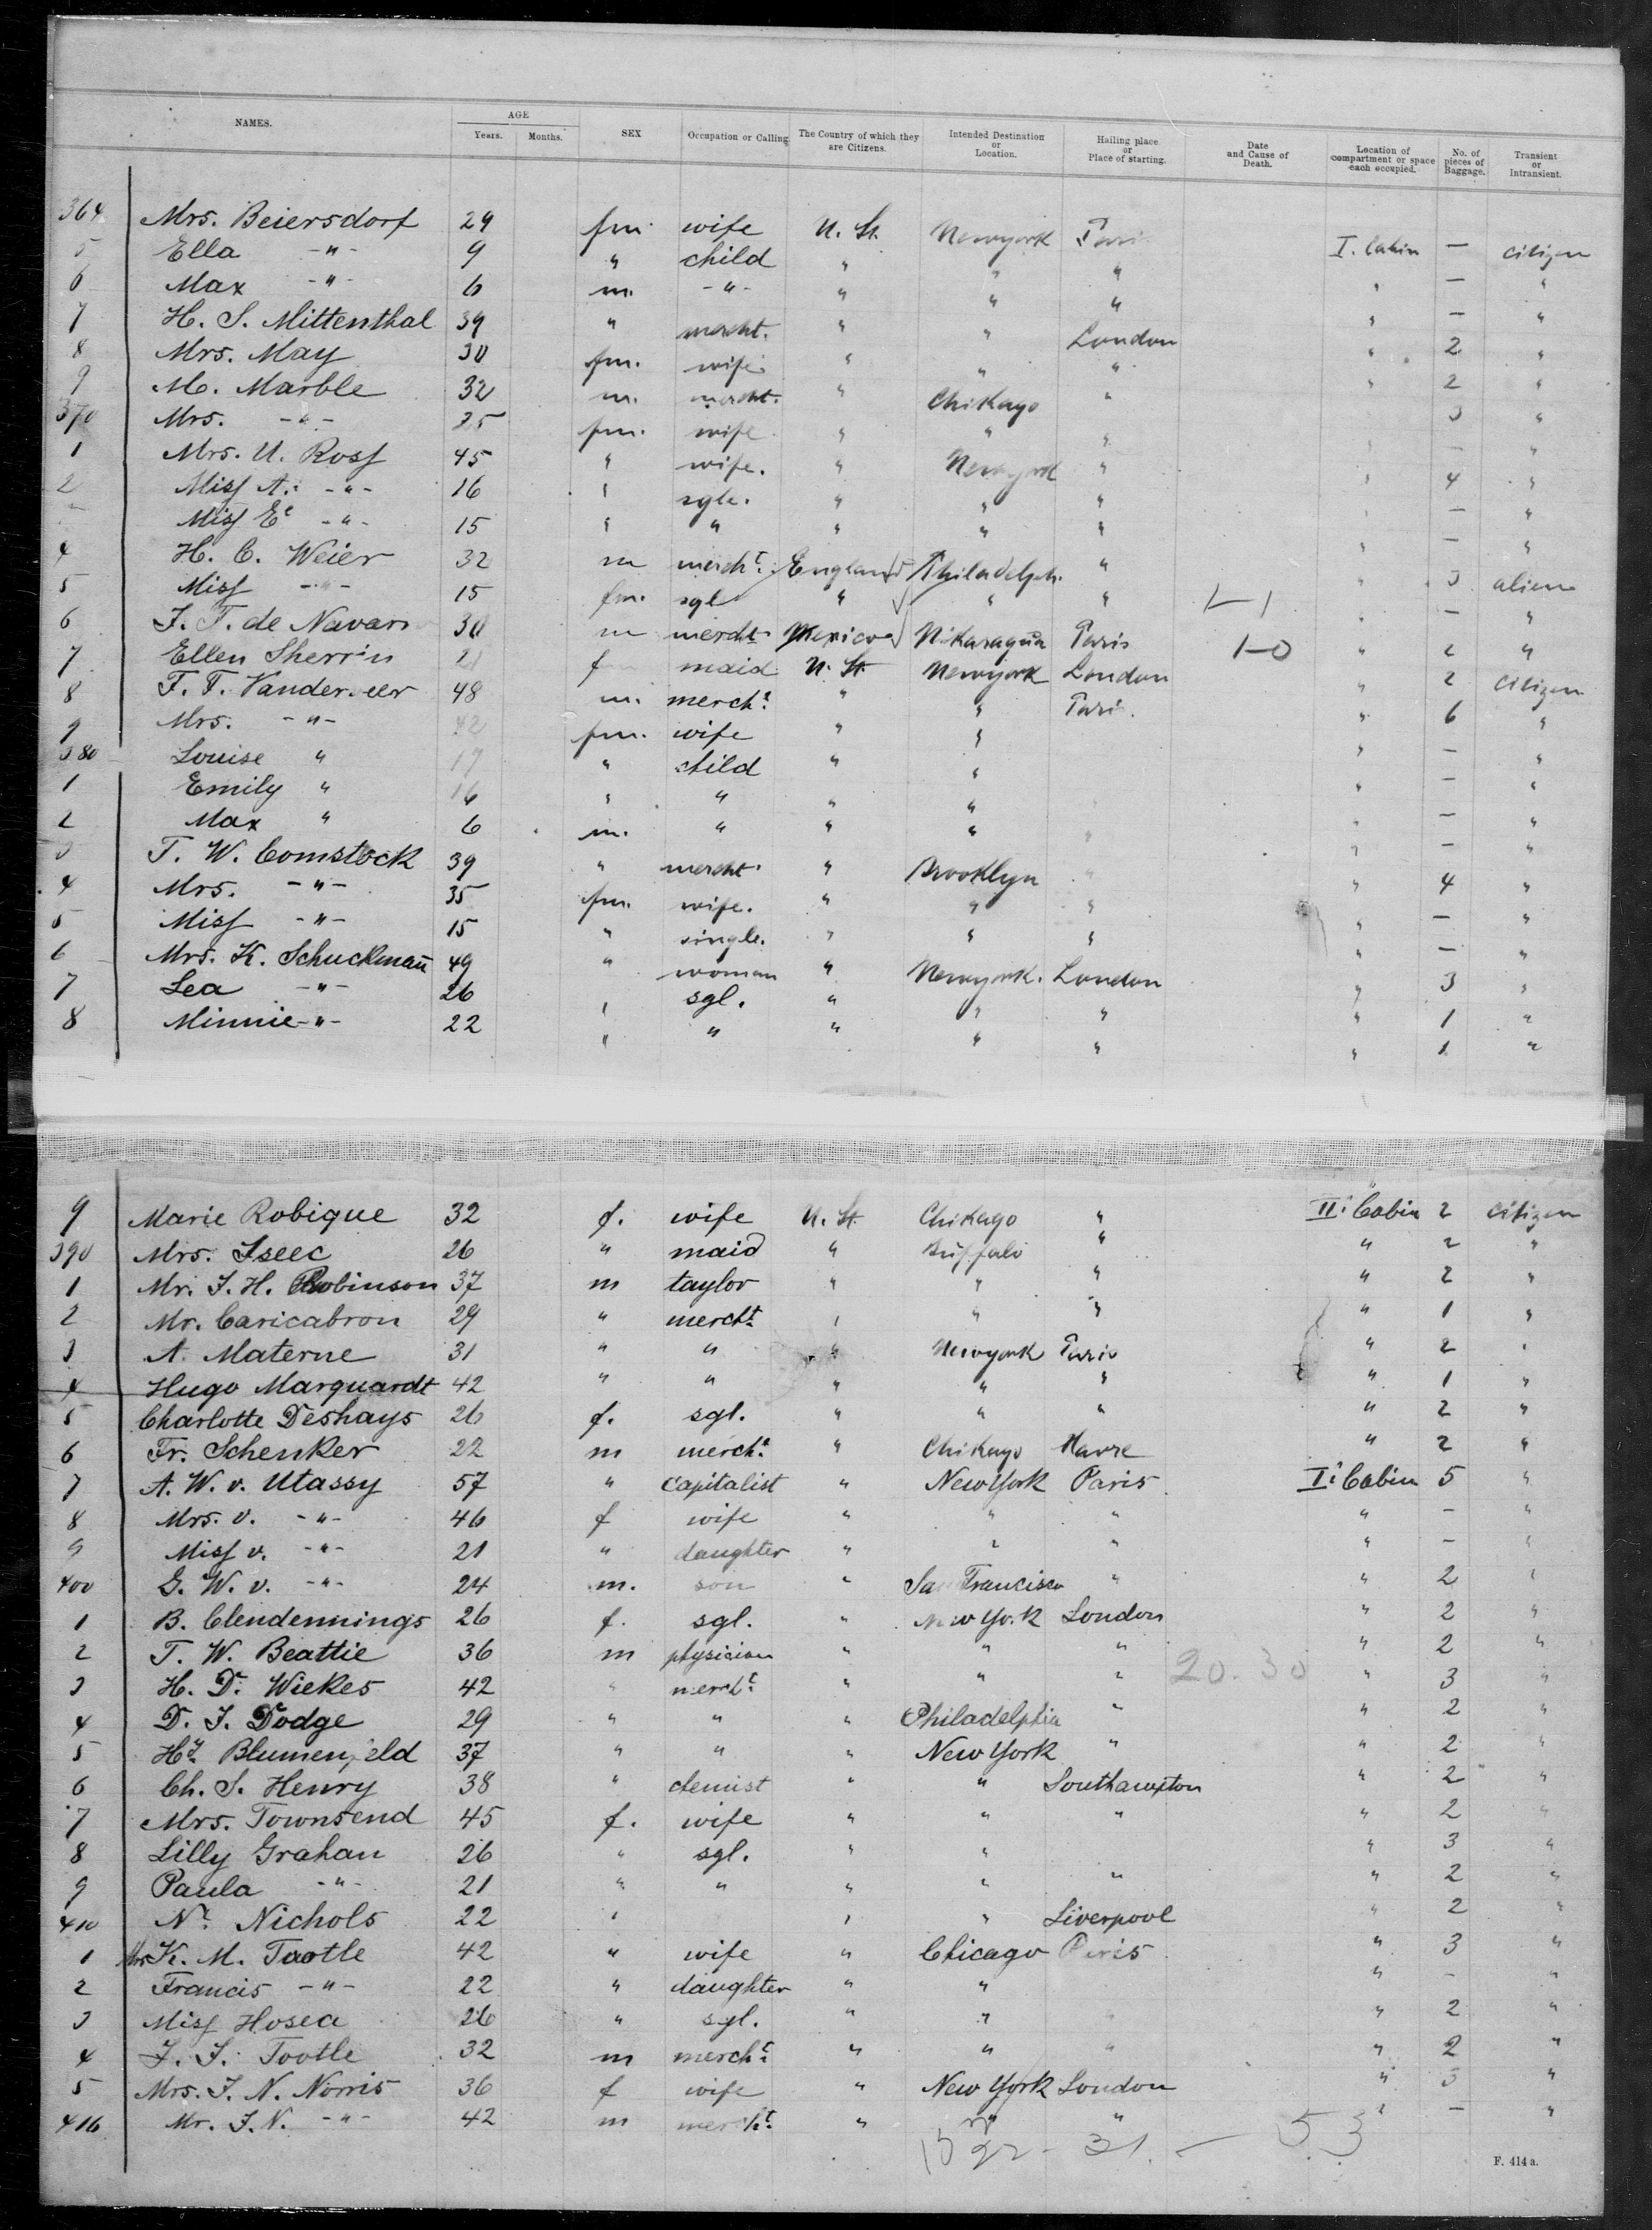 NAMES. AGE Years. Months. SEX Occupation or Calling The Country of which they are Citizens. Intended Destination or Location. Hailing place or Place of starting. Date and Cause of Death. Location of compartment or space each occupied. No. of pieces of Baggage. Transient or Intransient.
364 Mrs. Beiersdorf 29 fm. wife U. St. Newyork Paris I. Cabin — citizen
5 Ella -"- 9 " child " " " " — "
6 Max -"- 6 m. -"- " " " " — "
7 H. S. Mittenthal 39 " mercht. " " London " 2 "
8 Mrs. May 30 fm. wife " " " " 2 "
9 M. Marble 32 m. mercht. " Chikago " 3 "
370 Mrs. -"- 25 fm. wife " " " " — "
1 Mrs. U. Ross 45 " wife. " Newyork " " 4 "
2 Miss A. -"- 16 " sgle. " " " " — "
Miss E. -"- 15 " " " " " " — "
4 H. C. Weier 32 m mercht. England Philadelph. " " 3 alien
5 Miss -"- 15 fm. sgl " " " 1-1 " — "
6 J. F. de Navarr 30 m mercht Mexico Nikaragua Paris 1-0 " 2 "
7 Ellen Sherrin 21 f maid U. St. Newyork London " 2 citizen
8 F. F. Vanderveer 48 m. mercht. " " Paris. " 6 "
9 Mrs. -"- 42 fm. wife " " " — "
380 Louise " 17 " child " " " — "
1 Emily " 16 " " " " " — "
2 Max " 6 m. " " " " " — "
3 T. W. Comstock 39 " mercht. " Brooklyn " " 4 "
4 Mrs. -"- 35 fm. wife. " " " " — "
5 Miss -"- 15 " single. " " " " — "
6 Mrs. K. Schuckmann 49 " woman " Newyork. London " 3 "
7 Lea -"- 26 " sgl. " " " " 1 "
8 Minnie -"- 22 " " " " " " 1 "
9 Marie Robique 32 f. wife U. St. Chikago " II. Cabin 2 citizen
390 Mrs. Iseec 26 " maid " Buffalo " " 2 "
1 Mr. J. H. Robinson 37 m taylor " " " " 2 "
2 Mr. Caricabron 29 " mercht. " " " " 1 "
3 A. Materne 31 " " " Newyork Paris " 2 "
4 Hugo Marquardt 42 " " " " " " 1 "
5 Charlotte Deshays 26 f. sgl. " " " " 2 "
6 Fr. Schenker 22 m mercht. " Chikago Havre " 2 "
7 A. W. v. Utassy 57 " Capitalist " New York Paris I. Cabin 5 "
8 Mrs. v. -"- 46 f wife " " " " — "
9 Miss v. -"- 21 " daughter " " " " — "
400 G. W. v. -"- 24 m. son " San Francisco " " 2 "
1 B. Clendennings 26 f. sgl. " New York London " 2 "
2 T. W. Beattie 36 m physician " " " " 2 "
3 H. D. Wickes 42 " mercht. " " " 20.30 " 3 "
4 D. J. Dodge 29 " " " Philadelphia " " 2 "
5 Hy. Blumenfeld 37 " " " New York " " 2 "
6 Ch. S. Henry 38 " chemist " " Southampton " 2 "
7 Mrs. Townsend 45 f. wife " " " " 2 "
8 Lilly Grahan 26 " sgl. " " " 3 "
9 Paula -"- 21 " " " " " " 2 "
410 N. Nichols 22 " " " Liverpool " 2 "
1 Mrs K. M. Tootle 42 " wife " Chicago Paris " 3 "
2 Francis -"- 22 " daughter " " " — "
3 Miss Hosea 26 " sgl. " " " " 2 "
4 J. S. Tootle 32 m mercht. " " " " 2 "
5 Mrs. J. N. Norris 36 f wife " New York London " 3 "
416 Mr. J. N. -"- 42 m mercht. " " " " — "
22 - 31. — 53
F. 414 a.